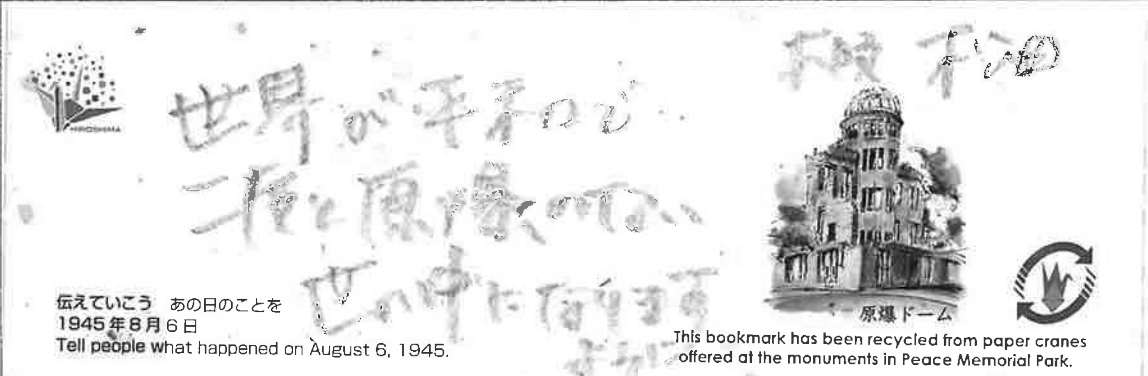 HIROSHIMA
世界が平和で
二度と原爆のない
世の中になります
ように
伝えていこう あの日のことを
1945年8月6日
Tell people what happened on August 6, 1945.
原爆ドーム
This bookmark has been recycled from paper cranes
offered at the monuments in Peace Memorial Park.